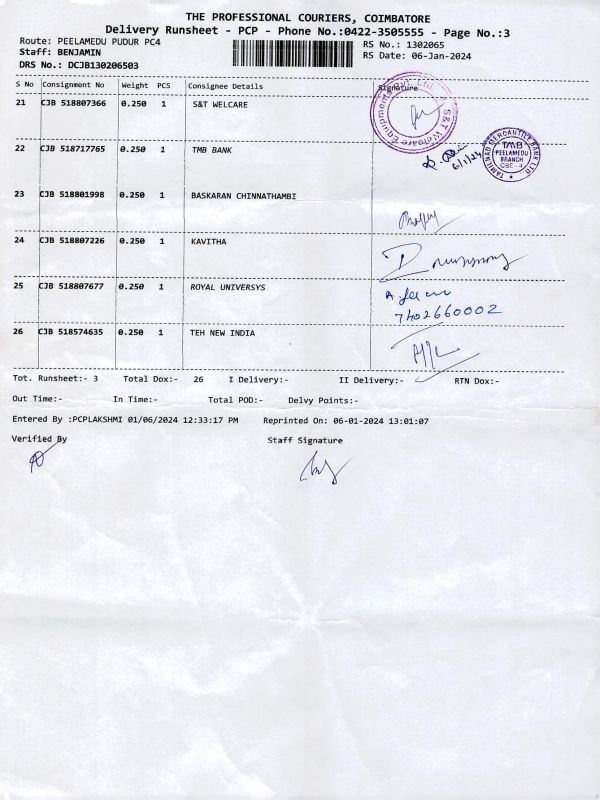 THE PROFESSIONAL COURIERS, COIMBATORE
Delivery Runsheet - PCP - Phone No.:0422-3505555 - Page No.:3
Route: PEELAMEDU PUDUR PC4
RS No.: 1302065
Staff: BENJAMIN
RS Date: 06-Jan-2024
DRS No.: DCJB130206503
S No Consignment No Weight PCS Consignee Details Signature
21 CJB 518807366 0.250 1 S&T WELCARE
S&T Welcare Equipments
22 CJB 518717765 0.250 1 TMB BANK
6/1/24
TAMILNAD MERCANTILE BANK LTD.
TMB
PEELAMEDU
BRANCH
CBE - 4
23 CJB 518801998 0.250 1 BASKARAN CHINNATHAMBI
24 CJB 518807226 0.250 1 KAVITHA
25 CJB 518807677 0.250 1 ROYAL UNIVERSYS
7402660002
26 CJB 518574635 0.250 1 TEH NEW INDIA
Tot. Runsheet:- 3 Total Dox:- 26 I Delivery:- II Delivery:- RTN Dox:-
Out Time:- In Time:- Total POD:- Delvy Points:-
Entered By :PCPLAKSHMI 01/06/2024 12:33:17 PM Reprinted On: 06-01-2024 13:01:07
Verified By Staff Signature